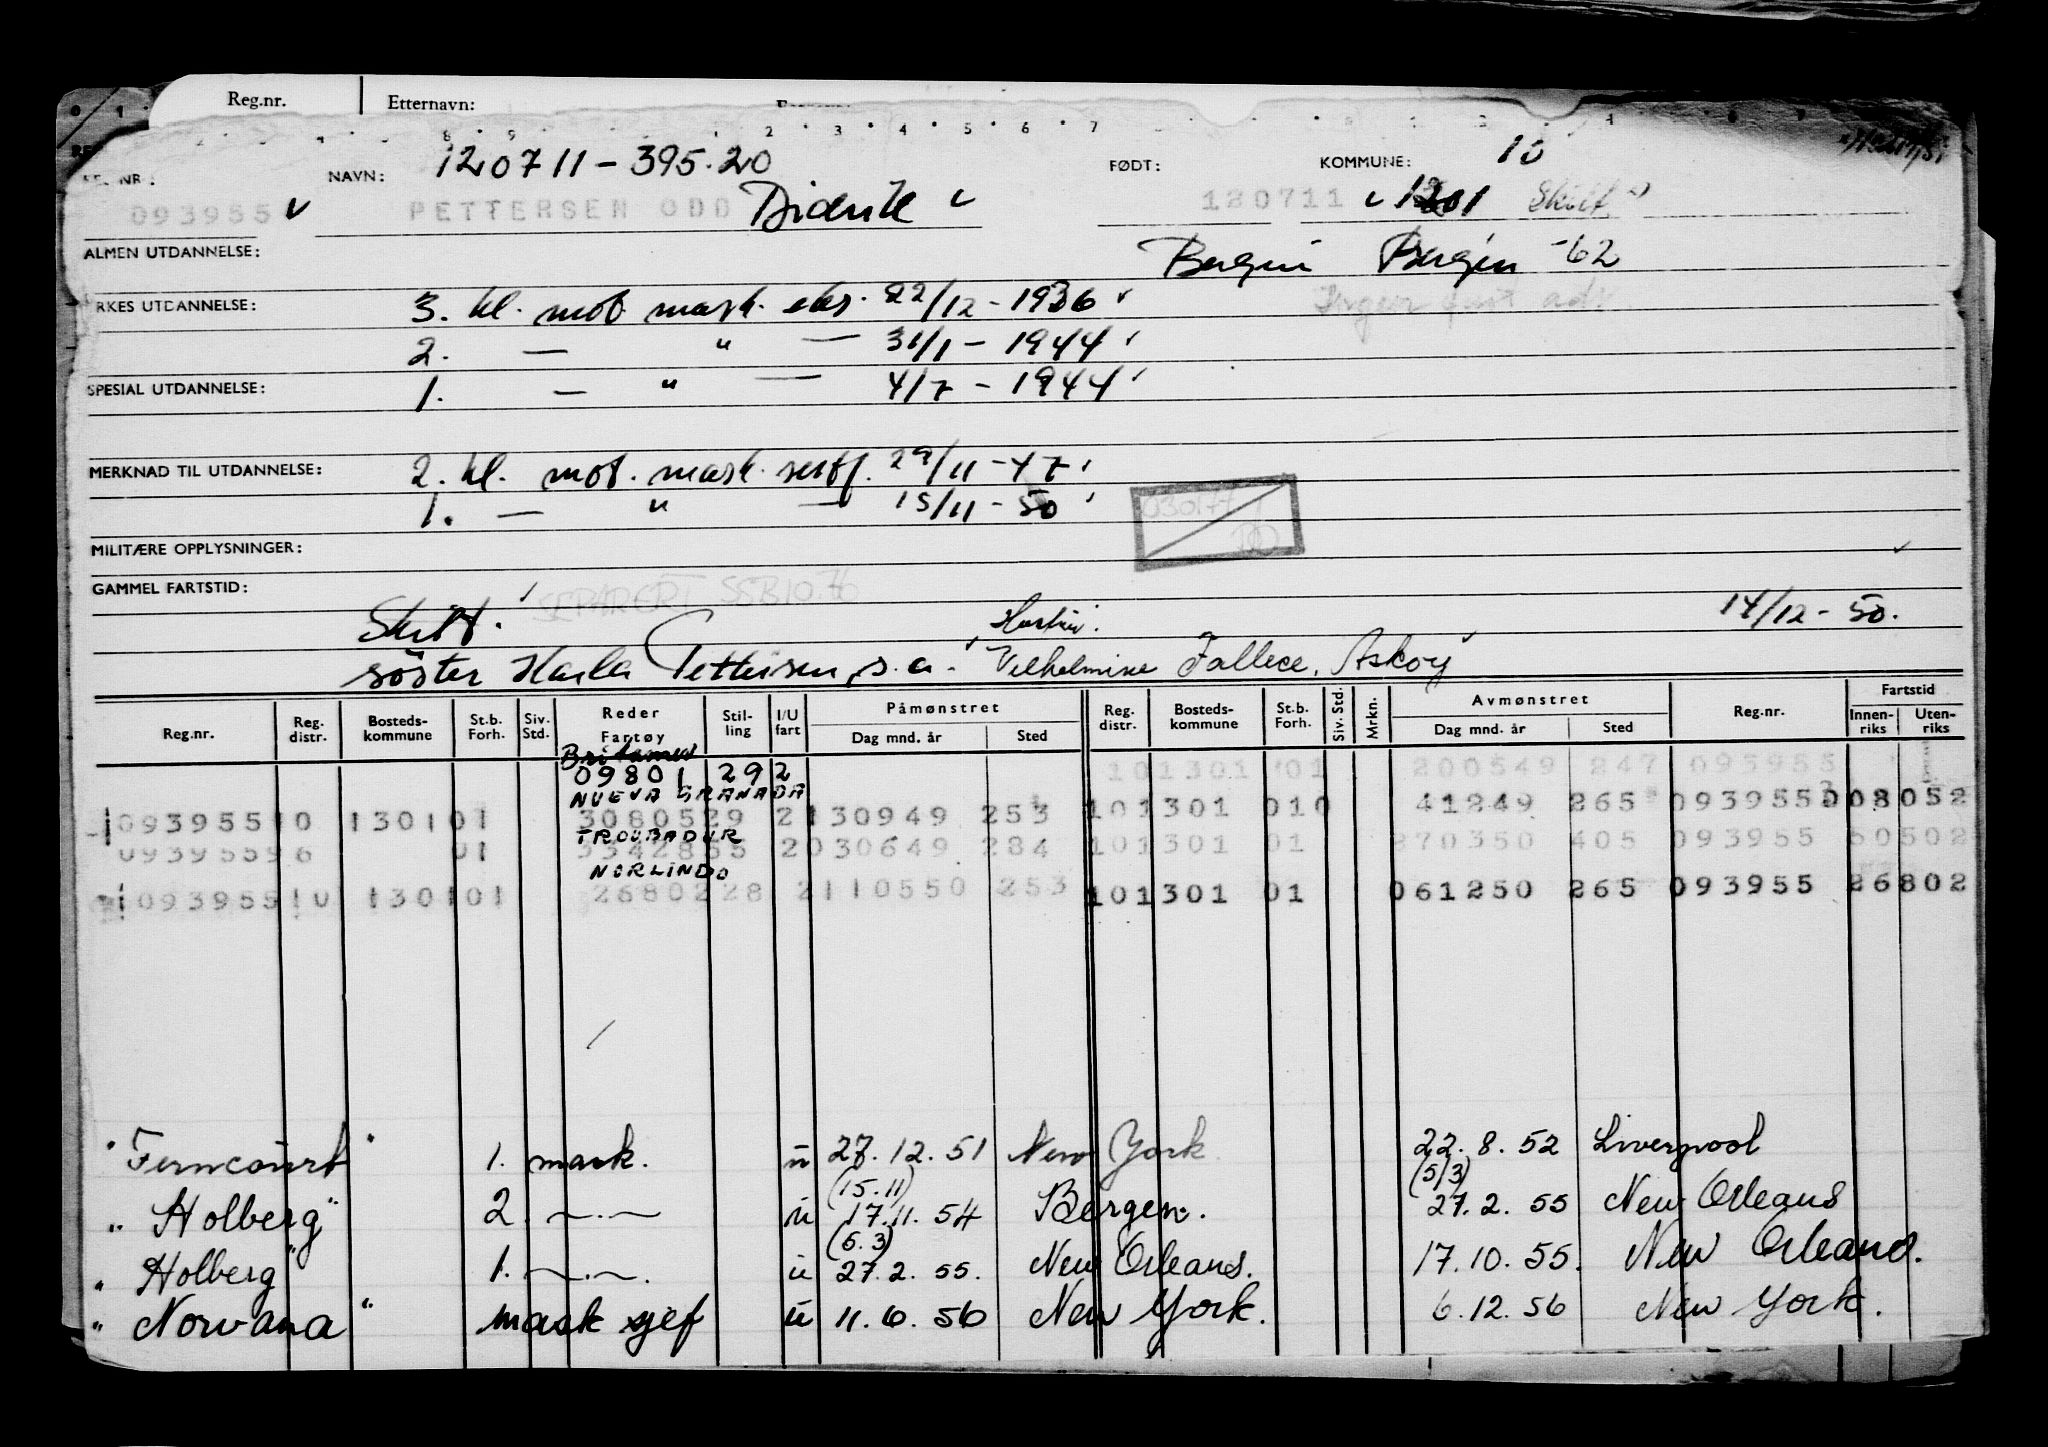 Reg.nr. Etternavn:
8 9 2 3 4 5 6 7
NAVN: 120711-395.20 FØDT: KOMMUNE: 10
093955 PETTERSEN ODD Diderik 120711 1301
ALMEN UTDANNELSE: Bergen Bergen -62
RKES UTDANNELSE: 3. kl. mot. mask. eks. 22/12 - 1936
2. — " — 31/1 - 1944
SPESIAL UTDANNELSE: 1. — " — 4/7 - 1944
MERKNAD TIL UTDANNELSE: 2. kl. mot. mask. sertf. 29/11 - 47
1. — " — 15/11 - 50
030177
MILITÆRE OPPLYSNINGER:
GAMMEL FARTSTID:
SEPARERT SSB 10.76
Skilt. Hustru. 14/12 - 50.
søster Karla Pettersen, s.a. Vilhelmine Askøy
Reg.nr. Reg. distr. Bosteds-kommune St.b. Forh. Siv. Std. Reder Fartøy Stil-ling I/U fart Påmønstret Dag mnd. år Sted Reg. distr. Bosteds-kommune St.b. Forh. Siv. Std. Mrkn. Avmønstret Dag mnd. år Sted Reg.nr. Fartstid Innen-riks Uten-riks
09801 292 101301 01 200549 247 093955
NUEVA GRANADA
093955 10 1301 01 3080529 2 130949 253 101301 010 41249 265 093955 008052
TROUBADUR
093955 96 01 3342855 2 030649 284 101301 01 270350 405 093955 50502
NORLINDO
093955 10 1301 01 2680228 2 110550 253 101301 01 061250 265 093955 26802
"Ferncourt" 1. mask. u 27.12.51 New York 22.8.52 Liverpool
(15.11) (5/3)
"Holberg" 2 —.— u 17.11.54 Bergen. 27.2.55 New Orleans
(6.3)
"Holberg" 1. —.—. u 27.2.55. New Orleans. 17.10.55. New Orleans.
"Norvana" mask sjef u 11.6.56 New York. 6.12.56 New York.